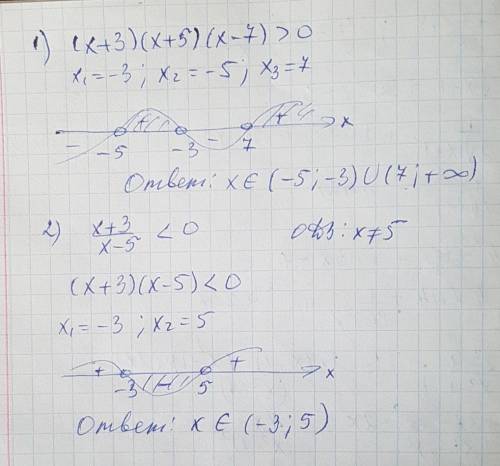 1) (x+3)(x+5)(x-7)>0
x₁=-3; x₂=-5; x₃=7
- + - + x
-5 -3 7
Ответ: x∈(-5;-3)∪(7;+∞)
2) x+3/x-5 <0 ОДЗ: x≠5
(x+3)(x-5)<0
x₁=-3; x₂=5
+ - + x
-3 5
Ответ: x∈(-3;5)